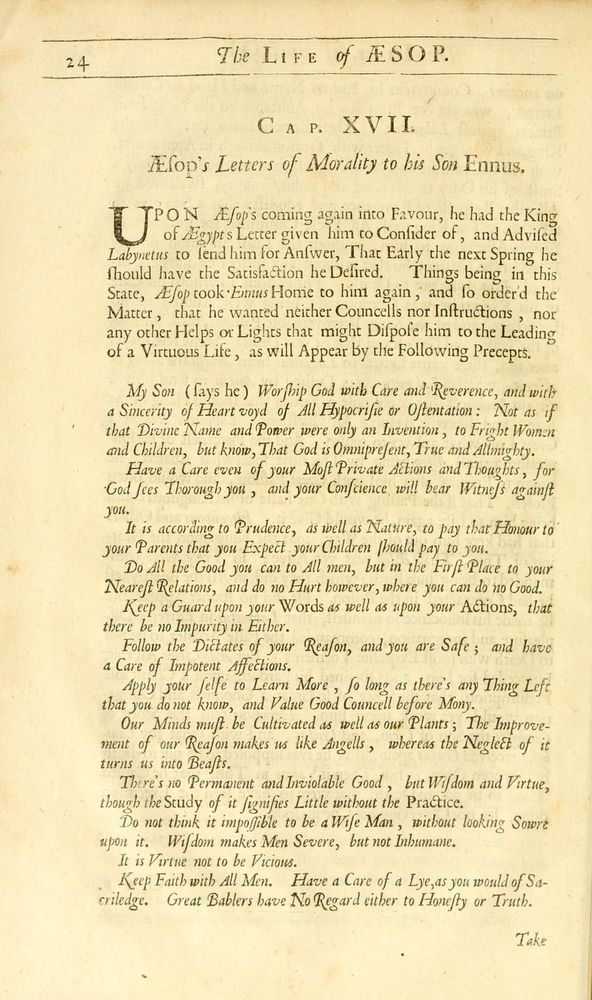 24
The LIFE of ÆSOP.
CAP. XVII.
Æſop's Letters of Morality to his Son Ennus.
UPON Æſop's coming again into Favour, he had the King
of Ægypts Letter given him to Conſider of, and Adviſed
Labynetus to ſend him for Anſwer, That Early the next Spring he
ſhould have the Satisfaction he Deſired. Things being in this
State, Æſop took Ennus Home to him again, and ſo order'd the
Matter, that he wanted neither Councells nor Inſtructions, nor
any other Helps or Lights that might Diſpoſe him to the Leading
of a Virtuous Life, as will Appear by the Following Precepts.
My Son (ſays he) Worſhip God with Care and Reverence, and with
a Sincerity of Heart voyd of All Hypocriſie or Oſtentation: Not as if
that Divine Name and Power were only an Invention, to Fright Women
and Children, but know, That God is Omnipreſent, True and Allmighty.
Have a Care even of your Moſt Private Actions and Thoughts, for
God ſees Thorough you, and your Conſcience will bear Witneſs againſt
you.
It is according to Prudence, as well as Nature, to pay that Honour to
your Parents that you Expect your Children ſhould pay to you.
Do All the Good you can to All men, but in the Firſt Place to your
Neareſt Relations, and do no Hurt however, where you can do no Good.
Keep a Guard upon your Words as well as upon your Actions, that
there be no Impurity in Either.
Follow the Dictates of your Reaſon, and you are Safe; and have
a Care of Impotent Affections.
Apply your ſelfe to Learn More, ſo long as there's any Thing Left
that you do not know, and Value Good Councell before Mony.
Our Minds muſt be Cultivated as well as our Plants; The Improve-
ment of our Reaſon makes us like Angells, whereas the Neglect of it
turns us into Beaſts.
There's no Permanent and Inviolable Good, but Wiſdom and Virtue,
though the Study of it ſignifies Little without the Practice.
Do not think it impoſſible to be a Wiſe Man, without looking Sowre
upon it. Wiſdom makes Men Severe, but not Inhumane.
It is Virtue not to be Vicious.
Keep Faith with All Men. Have a Care of a Lye, as you would of Sa-
criledge. Great Bablers have No Regard either to Honeſty or Truth.
Take